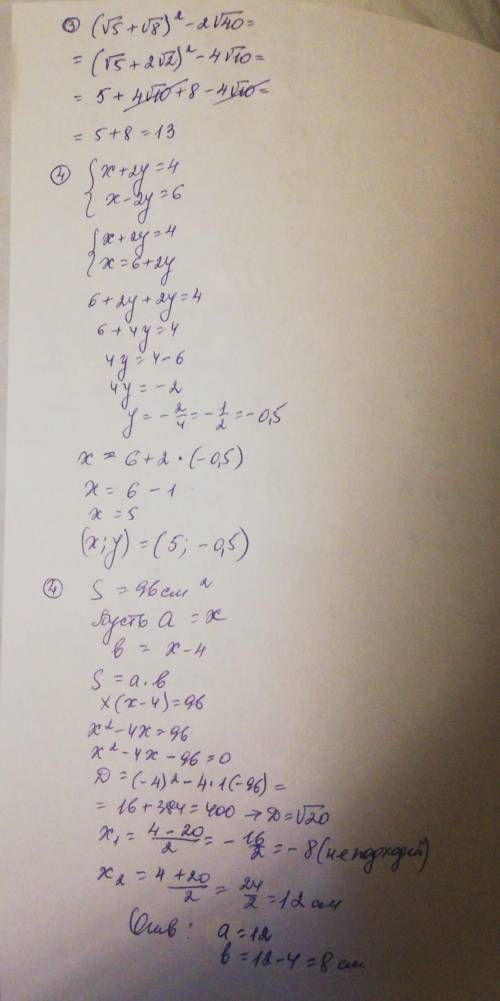 ③ (√5+√8)² - 2√40 =
= (√5+2√2)² - 4√10 =
= 5 + 4√10 + 8 - 4√10 =
= 5+8 = 13
④ { x+2y=4
x-2y=6
{ x+2y=4
x=6+2y
6+2y+2y=4
6+4y=4
4y=4-6
4y=-2
y=-2/4=-1/2=-0,5
x=6+2·(-0,5)
x=6-1
x=5
(x;y)=(5;-0,5)
④ S=96см²
Пусть a=x
в=x-4
S=a·в
x(x-4)=96
x²-4x=96
x²-4x-96=0
D=(-4)²-4·1(-96)=
=16+384=400 → D=√20
x₁=4-20/2=-16/2=-8(не подходит)
x₂=4+20/2=24/2=12см
Отв: a=12
в=12-4=8см